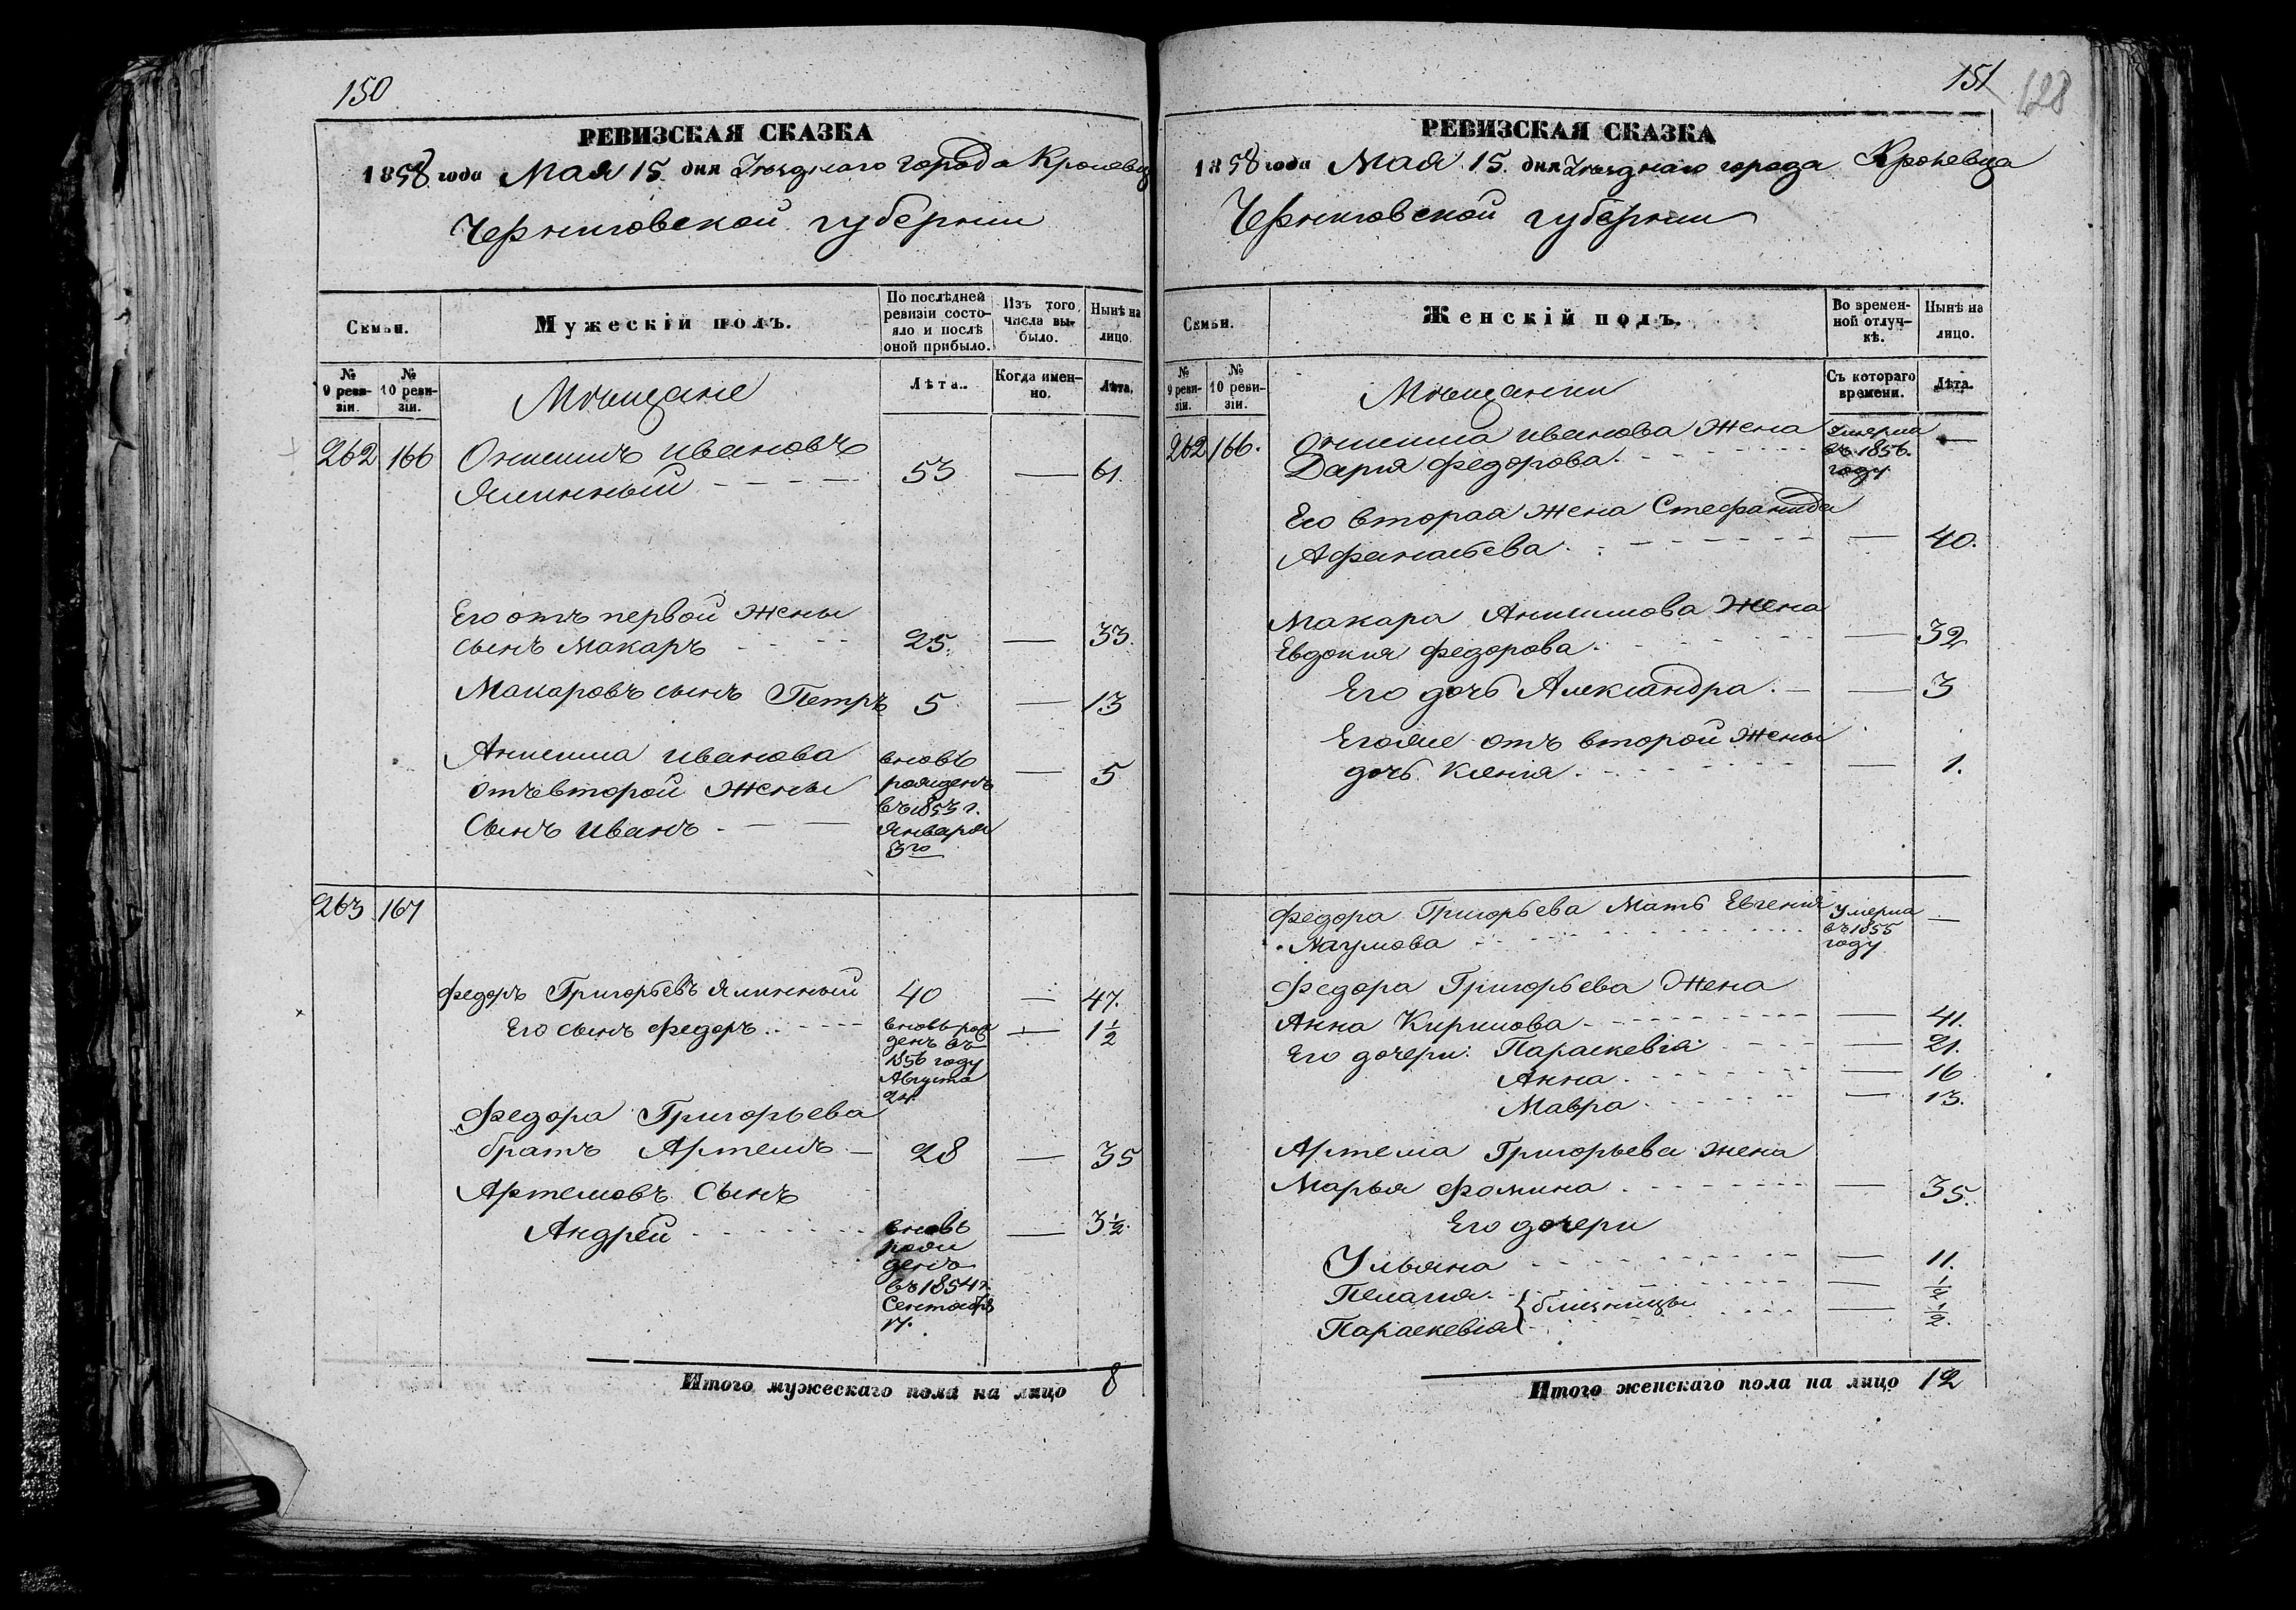 150
РЕВИЗСКАЯ СКАЗКА
1858 года Мая 15 дня Уѣзднаго города Кролевца
Черниговской губерніи
Семьи.
Мужескій полъ.
По послѣдней ревизіи состояло и послѣ оной прибыло.
Изъ того числа выбыло.
Нынѣ на лицо.
№ 9 ревизіи.
№ 10 ревизіи.
Мѣщане
Лѣта.
Когда именно.
Лѣта.
262 166 Онисимъ Ивановъ
Ялинный 53 — 61.
Его отъ первой жены
сынъ Макаръ 25. — 33.
Макаровъ сынъ Петръ 5 — 13
Анисима Иванова
отъ второй жены
Сынъ Иванъ
вновь
рожденъ
въ 1853 г.
Января
3го
— 5
263 167
Федоръ Григорьевъ Ялинный 40 — 47.
Его сынъ Федоръ
вновь рож
денъ въ
1856 году
Августа
24.
— 1 1/2
Федора Григорьева
братъ Артемъ — 28 — 35
Артемовъ Сынъ
Андрей
вновь
рож
денъ
въ 1854 г.
Сентября
17.
— 3 1/2.
Итого мужескаго пола на лицо 8
151
128
РЕВИЗСКАЯ СКАЗКА
1858 года Мая 15. дня Уѣзднаго города Кролевца
Черниговской губерніи
Семьи.
Женскій полъ.
Во временной отлучкѣ.
Нынѣ на лицо.
№ 9 ревизіи.
№ 10 ревизіи.
Мѣщанки
Съ котораго времени.
Лѣта.
262 166. Онисима Иванова Жена
Дарія Федорова.
Умерла
въ 1856.
году
—
Его вторая жена Стефанида
Афанасьева — 40.
Макара Анисимова Жена
Евдокия Федорова — 32
Его дочь Александра. — 3
Егоже отъ второй жены
дочь Ксенія. — 1.
Федора Григорьева Мать Евгенія
Наумова
Умерла
въ 1855
году
—
Федора Григорьева Жена
Анна Кирилова — 41.
Его дочери: Параскевія — 21.
Анна — 16
Мавра — 13.
Артема Григорьева жена
Марья Фомина — 35.
Его дочери
Ульяна — 11.
Пелагія — 1/2
близницы
Параскевія — 1/2.
Итого женскаго пола на лицо 12